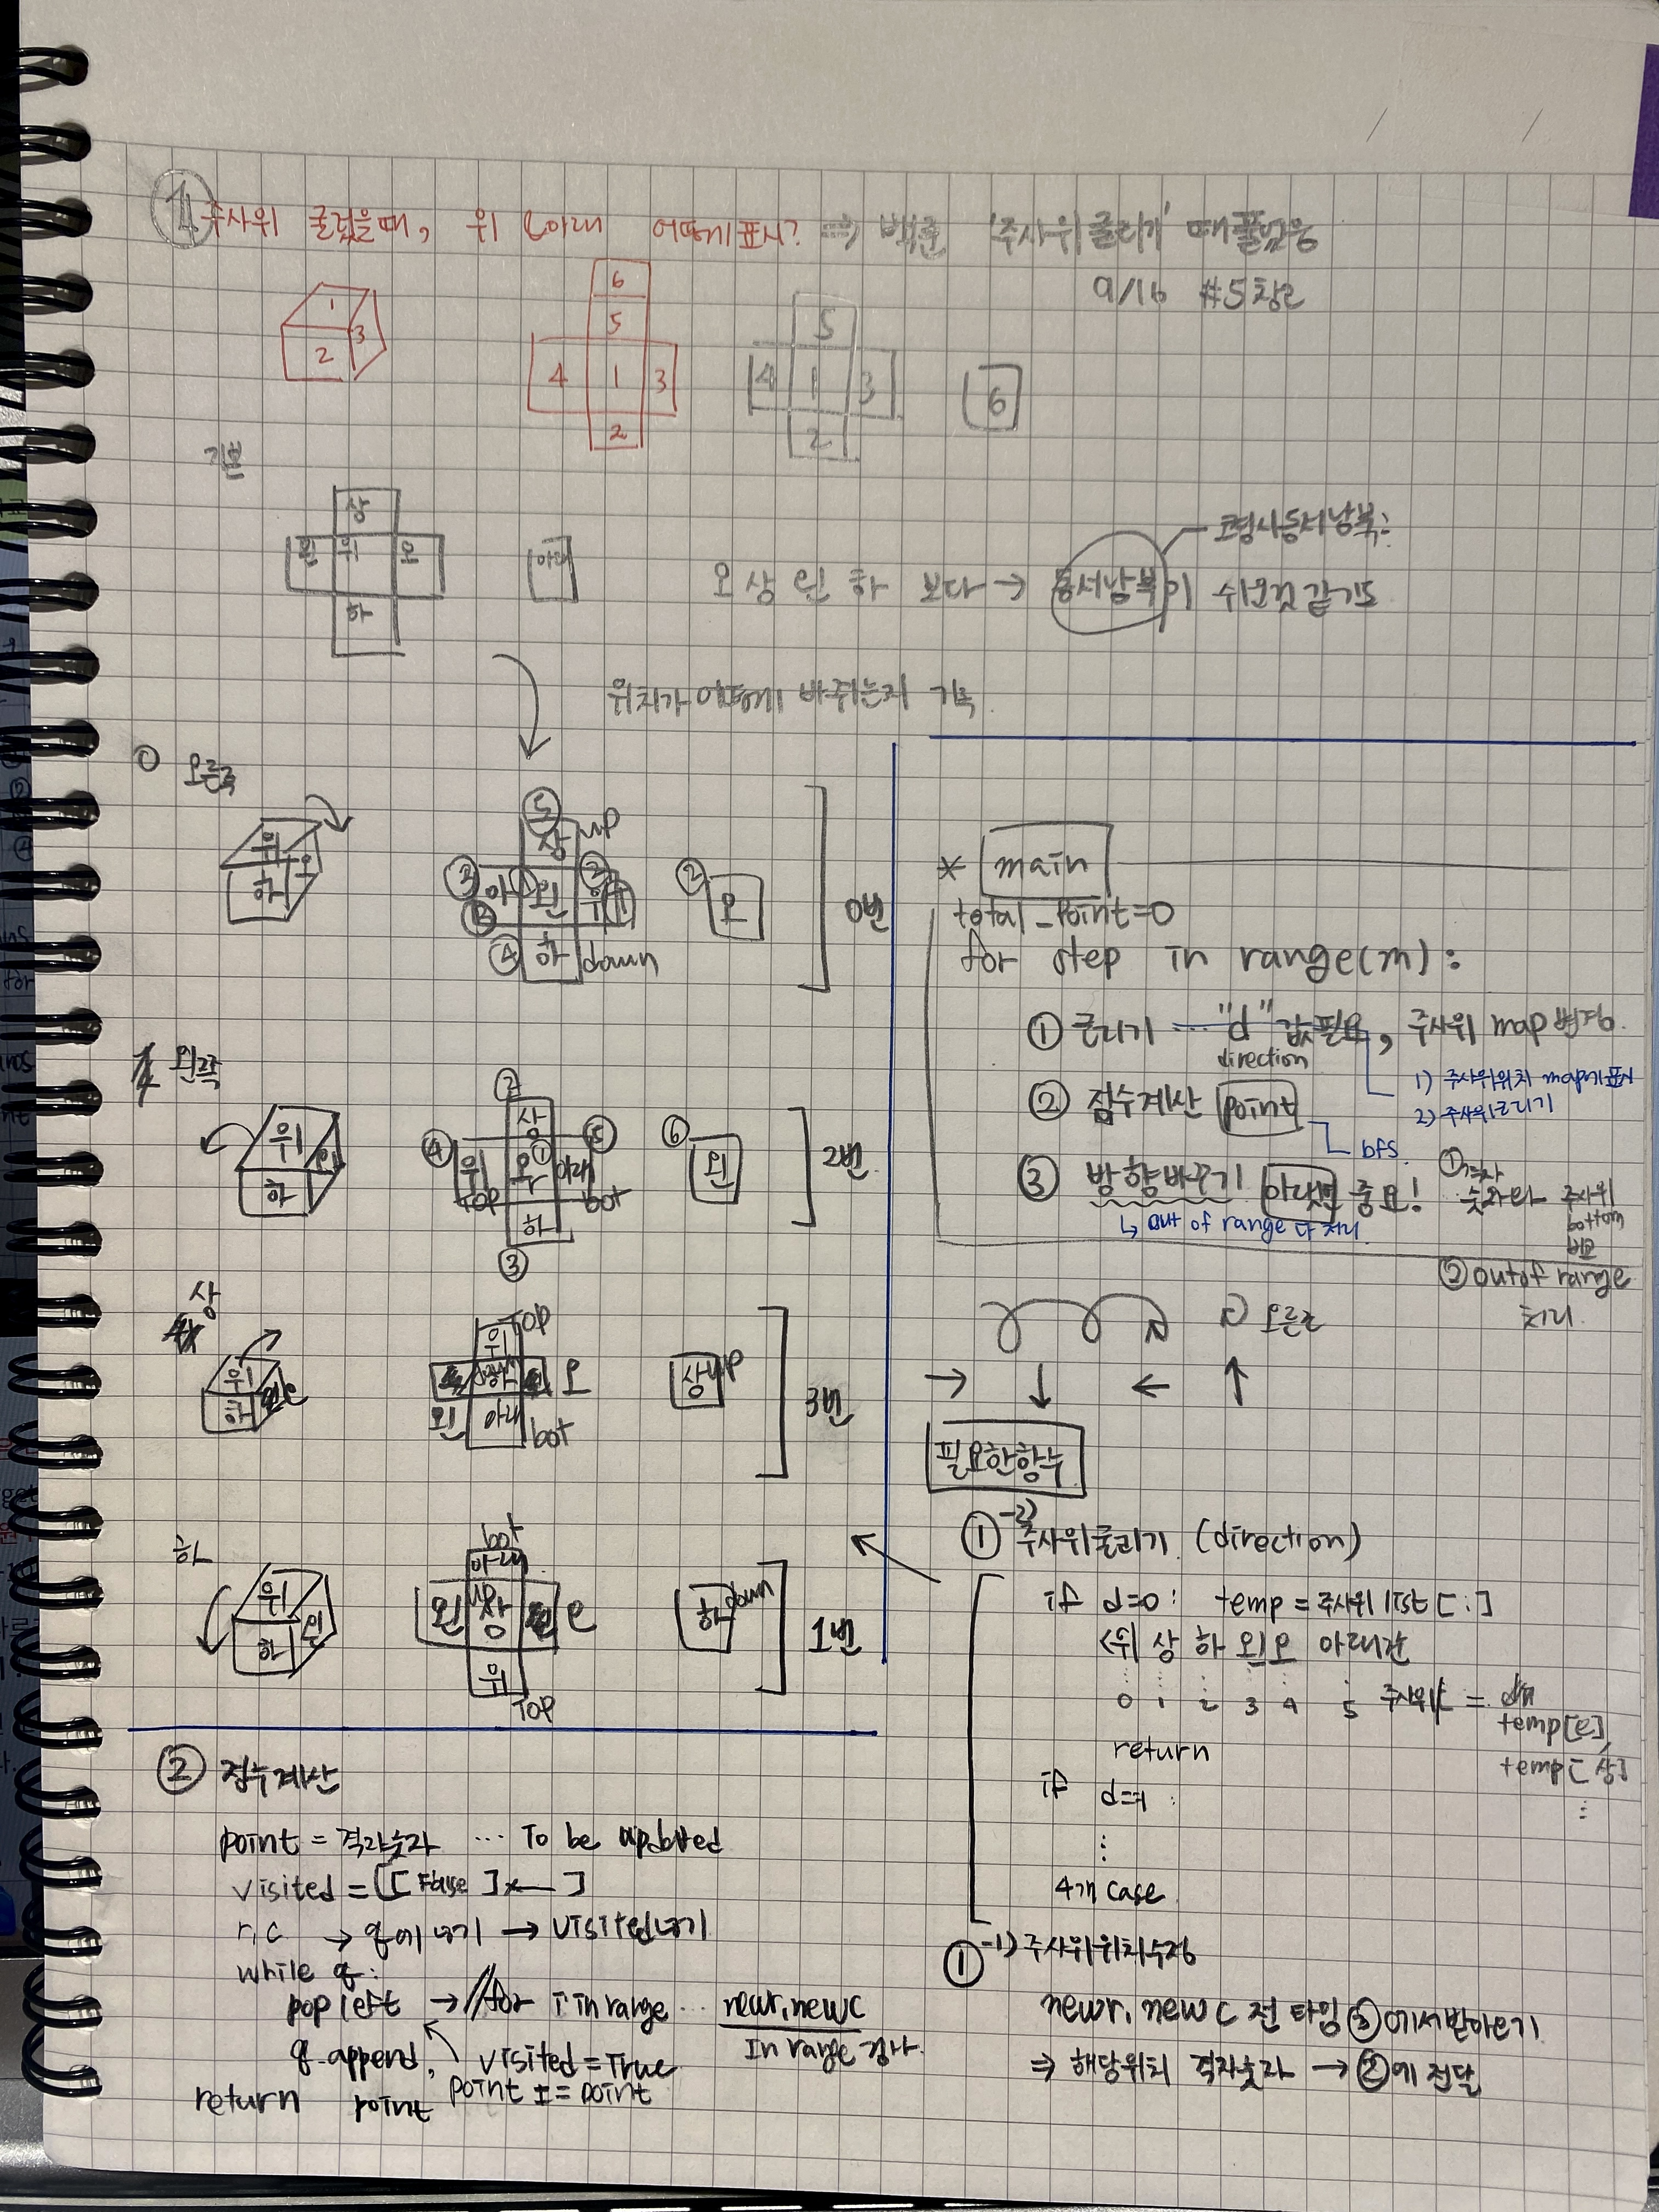 ① 주사위 굴렸을때, 위 & 아래 어떻게 표시? ⇒ 백준 '주사위 굴리기' 때 풀었음
9/16 #5 참고
1 3 2
6
5
4 1 3
2
5
4 1 3
2
6
기본
상
왼 위 오
하
아래
오 상 왼 하 보다 → 동서남북이 쉬운것 같기도
코령사동서남북:
위치가 어떻게 바뀌는지 기록
오른쪽
위 오 하
⑤
상 up
③ 아 왼 위
④ 하 down
② 오
0번
왼쪽
위 하
②
상
④ 위 오 ① 아래 ⑤
TOP bot
하
③
⑥ 왼
2번
상
위 하
위 TOP
하 오
왼 아래 bot
상 up
3번
하
위 하
bot
아래
왼 상 e
위
TOP
하 down
1번
* main
total_point=0
for step in range(m):
① 굴리기 ... "d" 값필요, 주사위 map 변경.
direction
1) 주사위위치 map에 표시
2) 주사위굴리기
② 점수계산 point
bfs
③ 방향바꾸기 아랫면 중요!
↳ out of range 다 처리.
① 격자
숫자와 주사위
bottom
비교
② out of range
처리.
오른쪽
→ ↓ ← ↑
필요한함수
①-2) 주사위굴리기 (direction)
if d=0: temp = 주사위 list[:]
<위 상 하 왼 오 아래>
0 1 2 3 4 5 주사위 =
temp[e],
temp[상]
return
if d=1 :
4개 case
①-1) 주사위위치수정
newr, newc 전 타임 ③에서받아오기
⇒ 해당위치 격자숫자 → ②에 전달
② 점수계산
point = 격자숫자 ... To be updated
visited = [[False]x__]
r,c → q에 넣기 → visited넣기
while q:
popleft → // for i in range ... newr, newc
In range 검사.
q.append, visited = True
point += point
return point